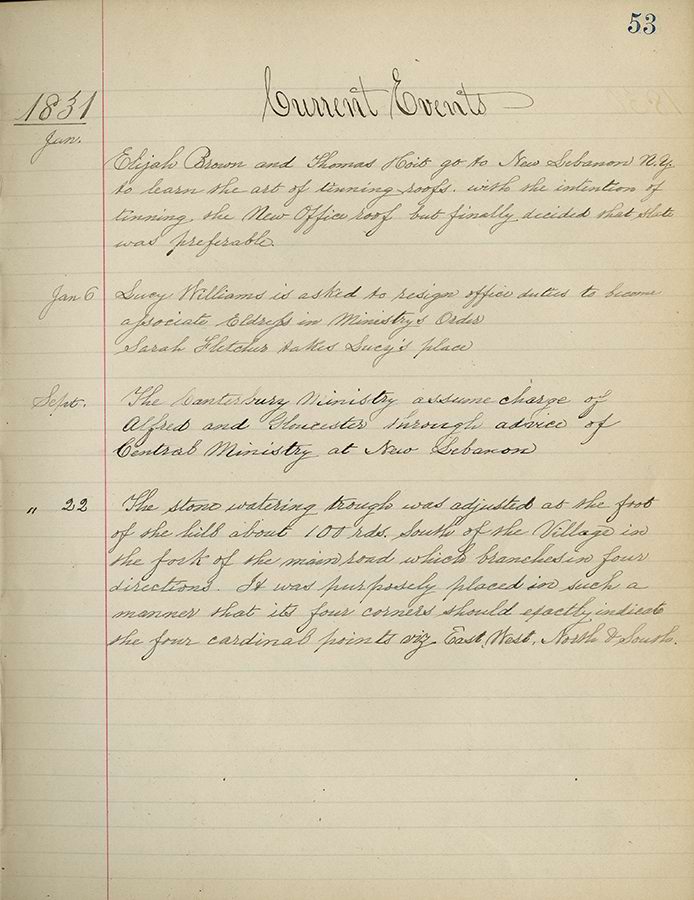 53
Current Events
1831
Jan.
Elijah Brown and Thomas Hoit go to New Lebanon N.Y.
to learn the art of tinning roofs. with the intention of
tinning, the New Office roof but finally decided that slate
was preferable
Jan 6 Lucy Williams is asked to resign office duties to become
associate Eldress in Ministry's Order
Sarah Fletcher takes Lucy's place
Sept. The Canterbury Ministry assume charge of
Alfred and Gloucester through advice of
Central Ministry at New Lebanon
" 22 The stone watering trough was adjusted at the foot
of the hill about 100 rds. South of the Village in
the fork of the main road which branches in four
directions. It was purposely placed in such a
manner that its four corners should exactly indicate
the four cardinal points viz East, West, North & South.